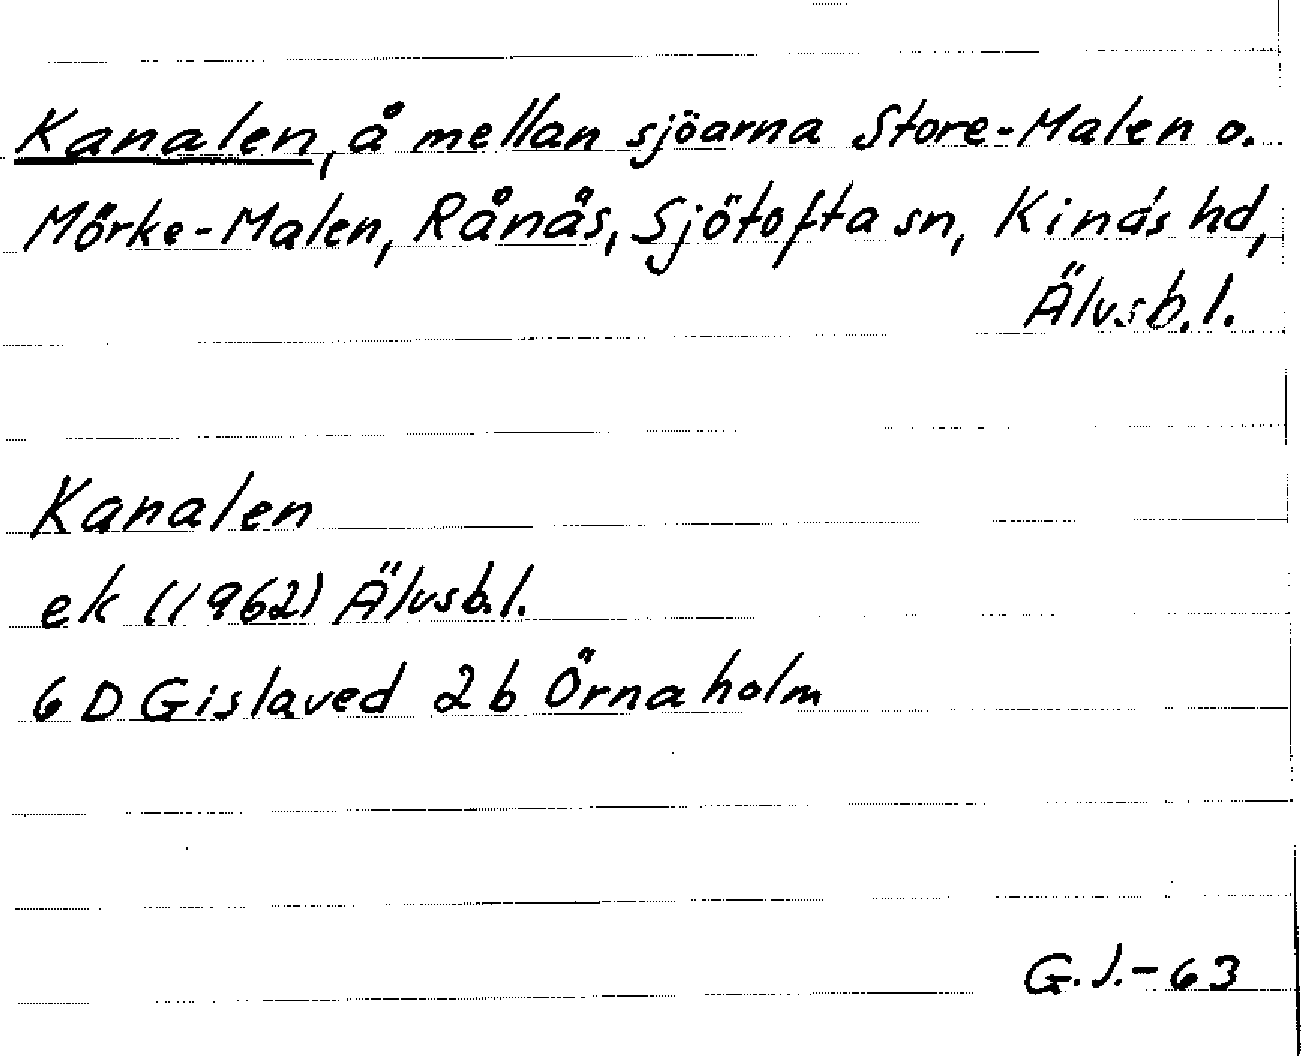 Kanalen, å mellan sjöarna Store-Malen o.
Mörke-Malen, Rånäs, Sjötofta sn, Kinds hd,
Älvsb.l.
Kanalen
ek (1962) Älvsb.l.
6 D Gislaved 2 b Örnaholm
G.J.-63